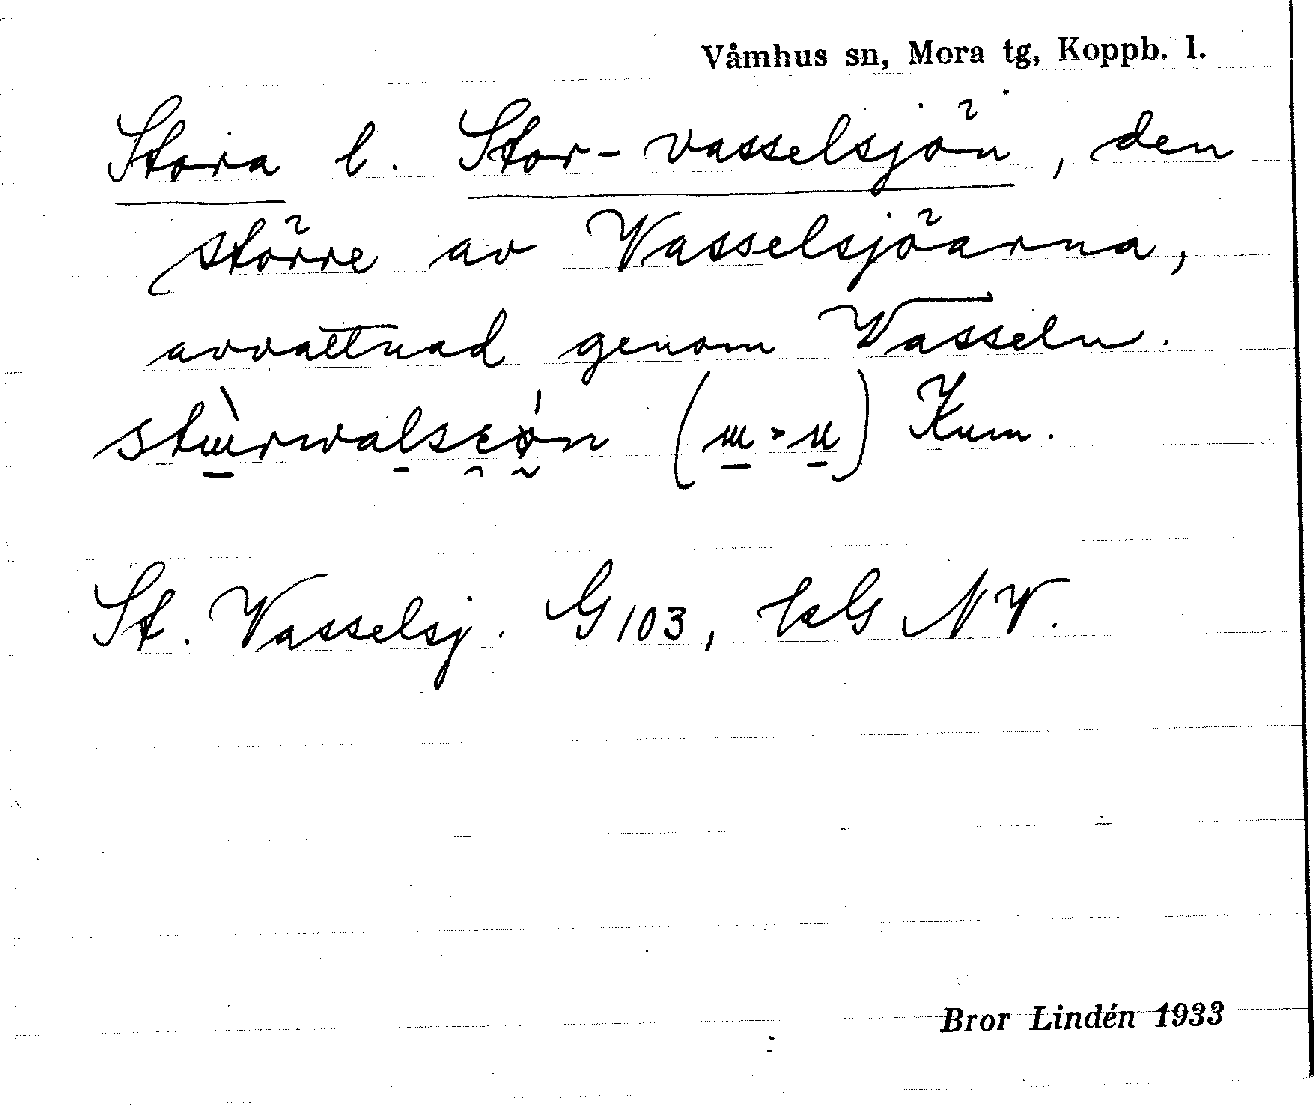 Våmhus sn, Mora tg, Koppb. l.
Stora l. Stor-vasselsjön, den
större av Vasselsjöarna,
avvattnad genom Vasseln.
Kum.
St. Vasselsj. G 103, NV.
Bror Lindén 1933